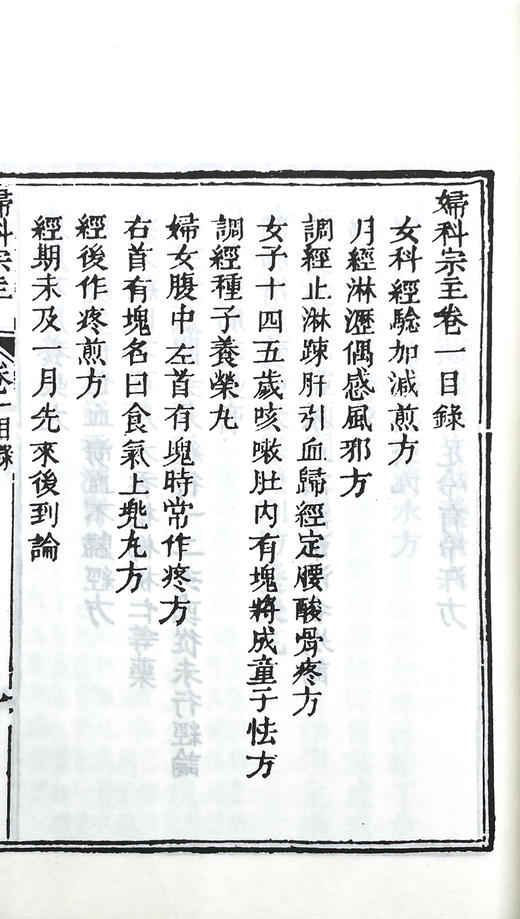 婦科宗主卷一目錄
女科經驗加減煎方
月經淋瀝偶感風邪方
調經止淋踈肝引血歸經定腰酸骨疼方
女子十四五歲咳嗽肚內有塊將成童子怯方
調經種子養榮丸
婦女腹中左首有塊時常作疼方
右首有塊名曰食氣上攻丸方
經後作疼煎方
經期未及一月先來後到論
婦科宗主 卷一目錄 一